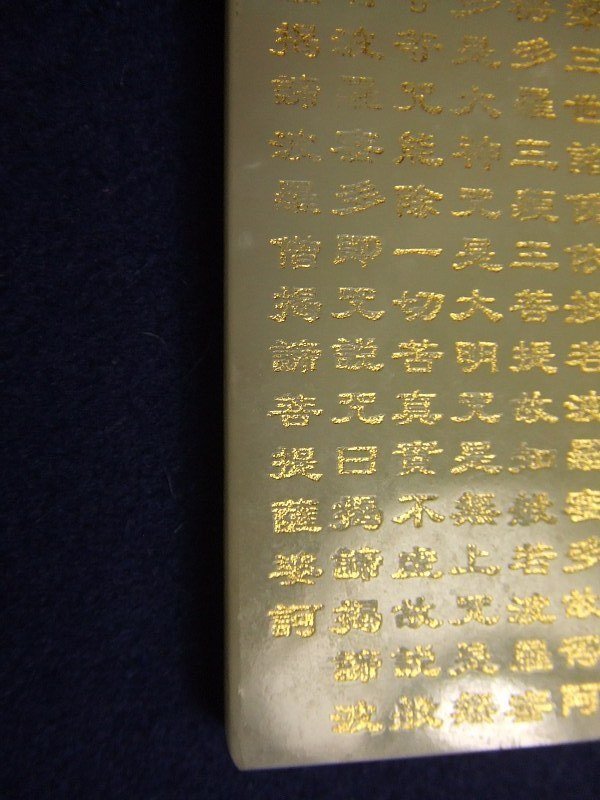 槃三世諸佛依般若波羅蜜多故得阿
耨多羅三藐三菩提故知般若波羅蜜
多是大神咒是大明咒是無上咒是無
等咒能除一切苦真實不虛故說般
波羅蜜多即咒說咒曰揭諦揭諦波
揭諦波羅僧揭諦菩提薩婆訶